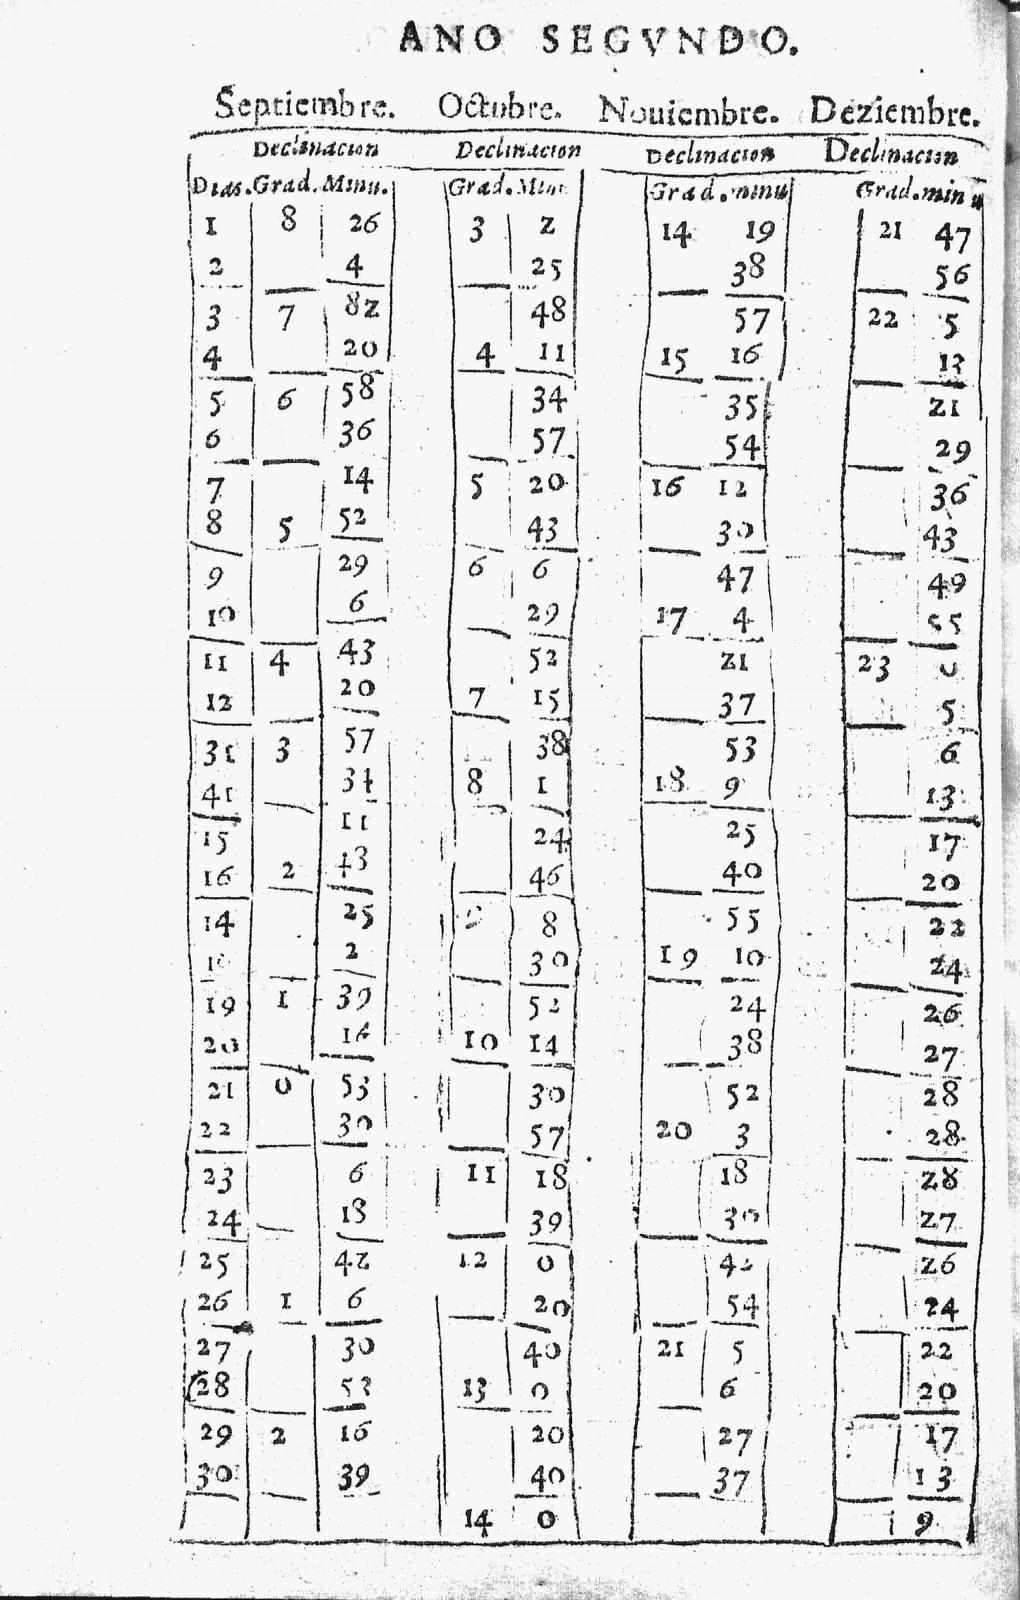 ANO SEGVNDO.
Septiembre. Octubre. Nouiembre. Deziembre.
Declinacion Declinacion Declinacion Declinacion
Dias. Grad. Minu. Grad. Minu Grad. minu Grad. minu
1 8 26 3 2 14 19 21 47
2 4 25 38 56
3 7 82 48 57 22 5
4 20 4 11 15 16 13
5 6 58 34 35 21
6 36 57 54 29
7 14 5 20 16 12 36
8 5 52 43 30 43
9 29 6 6 47 49
10 6 29 17 4 55
11 4 43 52 21 23 0
12 20 7 15 37 5
31 3 57 38 53 6
41 34 8 1 18 9 13
15 11 24 25 17
16 2 43 46 40 20
14 25 8 55 22
2 30 19 10 24
19 1 39 52 24 26
20 16 10 14 38 27
21 0 53 30 52 28
22 30 57 20 3 28
23 6 11 18 18 28
24 18 39 30 27
25 42 12 0 42 26
26 1 6 20 54 24
27 30 40 21 5 22
28 53 13 0 6 20
29 2 16 20 27 17
30 39 40 37 13
14 0 9